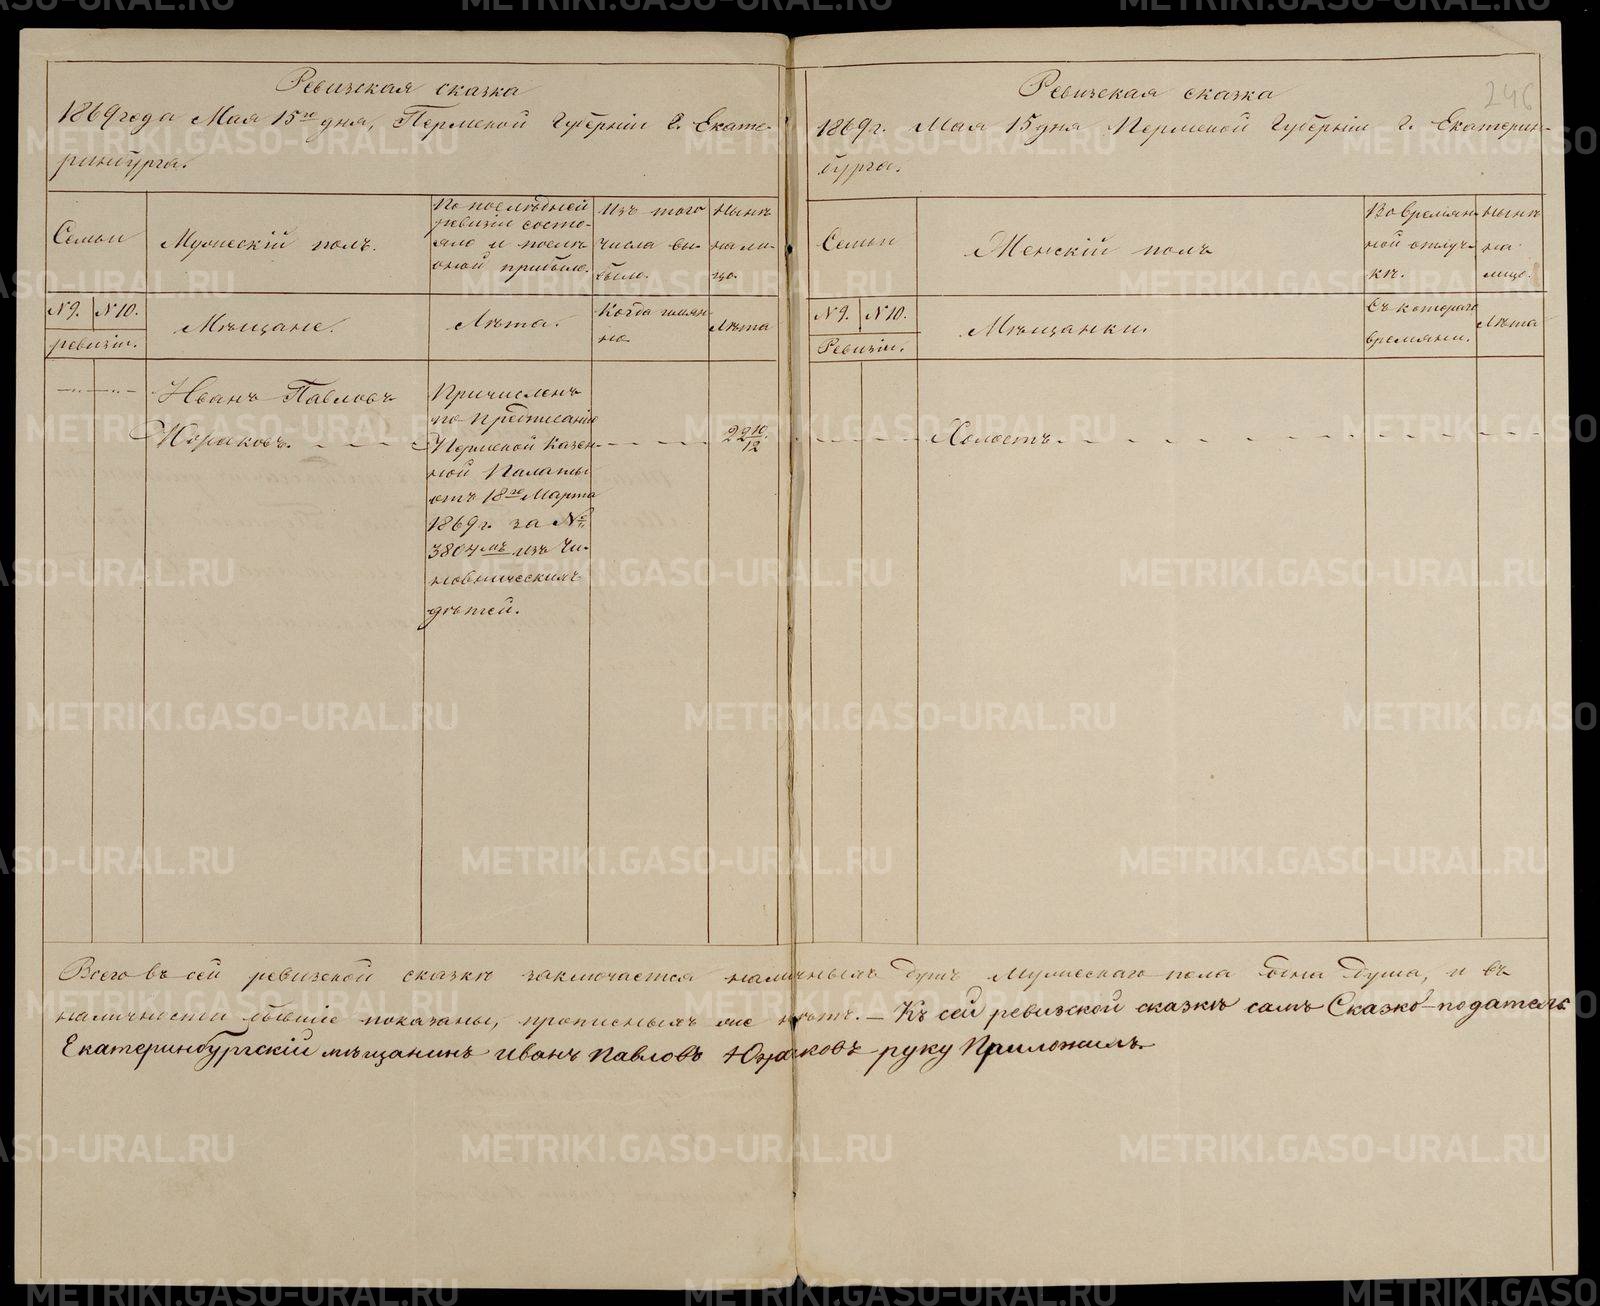 Ревизская сказка
1869 года Мая 15го дня, Пермской Губернiи Г. Екате-
ринбурга.
Семьи
Мужескiй полъ.
По последней
ревизiи состо-
яло и послѣ
оной прибыло.
Изъ того
числа вы-
было.
Нынѣ
нали-
цо.
№ 9. № 10.
ревизiи.
Мѣщане.
Лѣта.
Когда имян-
но.
Лѣта
Иванъ Павловъ
Юраковъ.
Причисленъ
по Предписанiю
Пермской Казен-
ной Палаты
отъ 18го Марта
1869 г. за №
3804мъ изъ Чи-
новническихъ
дѣтей.
22 10/12
Ревизская сказка
246
1869 г. Мая 15 дня Пермской Губернiи Г. Екатерин-
бурга.
Семьи
Женскiй полъ
Во времян-
ной отлуч-
кѣ.
Нынѣ
на
лицо.
№ 9. № 10.
Ревизiи.
Мѣщанки.
Съ котораго
времяни.
Лѣта
Холостъ.
Всего въ сей ревизской сказкѣ заключается наличныхъ душъ Мужескаго пола одна душа, и въ
наличности бывшiе показаны, прописныхъ же нѣтъ. – Къ сей ревизской сказкѣ самъ Сказко-податель
Екатеринбургскiй мѣщанинъ Иванъ Павловъ Юраковъ руку Приложилъ.
METRIKI.GASO-URAL.RU